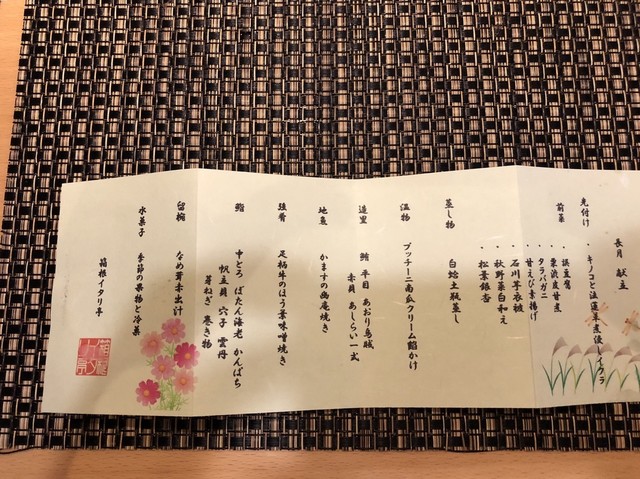 長月 献立
先付け
・キノコと法蓮草煮浸し
前菜
・鎮豆腐
・栗渋皮甘煮
・タラバガニ
・甘えび素揚げ
・石川芋衣被
・秋野菜白和え
・松葉銀杏
蒸し物
白蛤土瓶蒸し
温物
プッチーニ南瓜クリーム餡かけ
造里
鮪 平目 あおり烏賊
赤貝 あしらい一式
地魚
かますの幽庵焼き
強肴
足柄牛のほう葉味噌焼き
鮨
中とろ ぼたん海老 かんぱち
帆立貝 穴子 雲丹
芽ねぎ 巻き物
留椀
なめ茸赤出汁
水菓子
季節の果物と冷菓
箱根イタリ亭